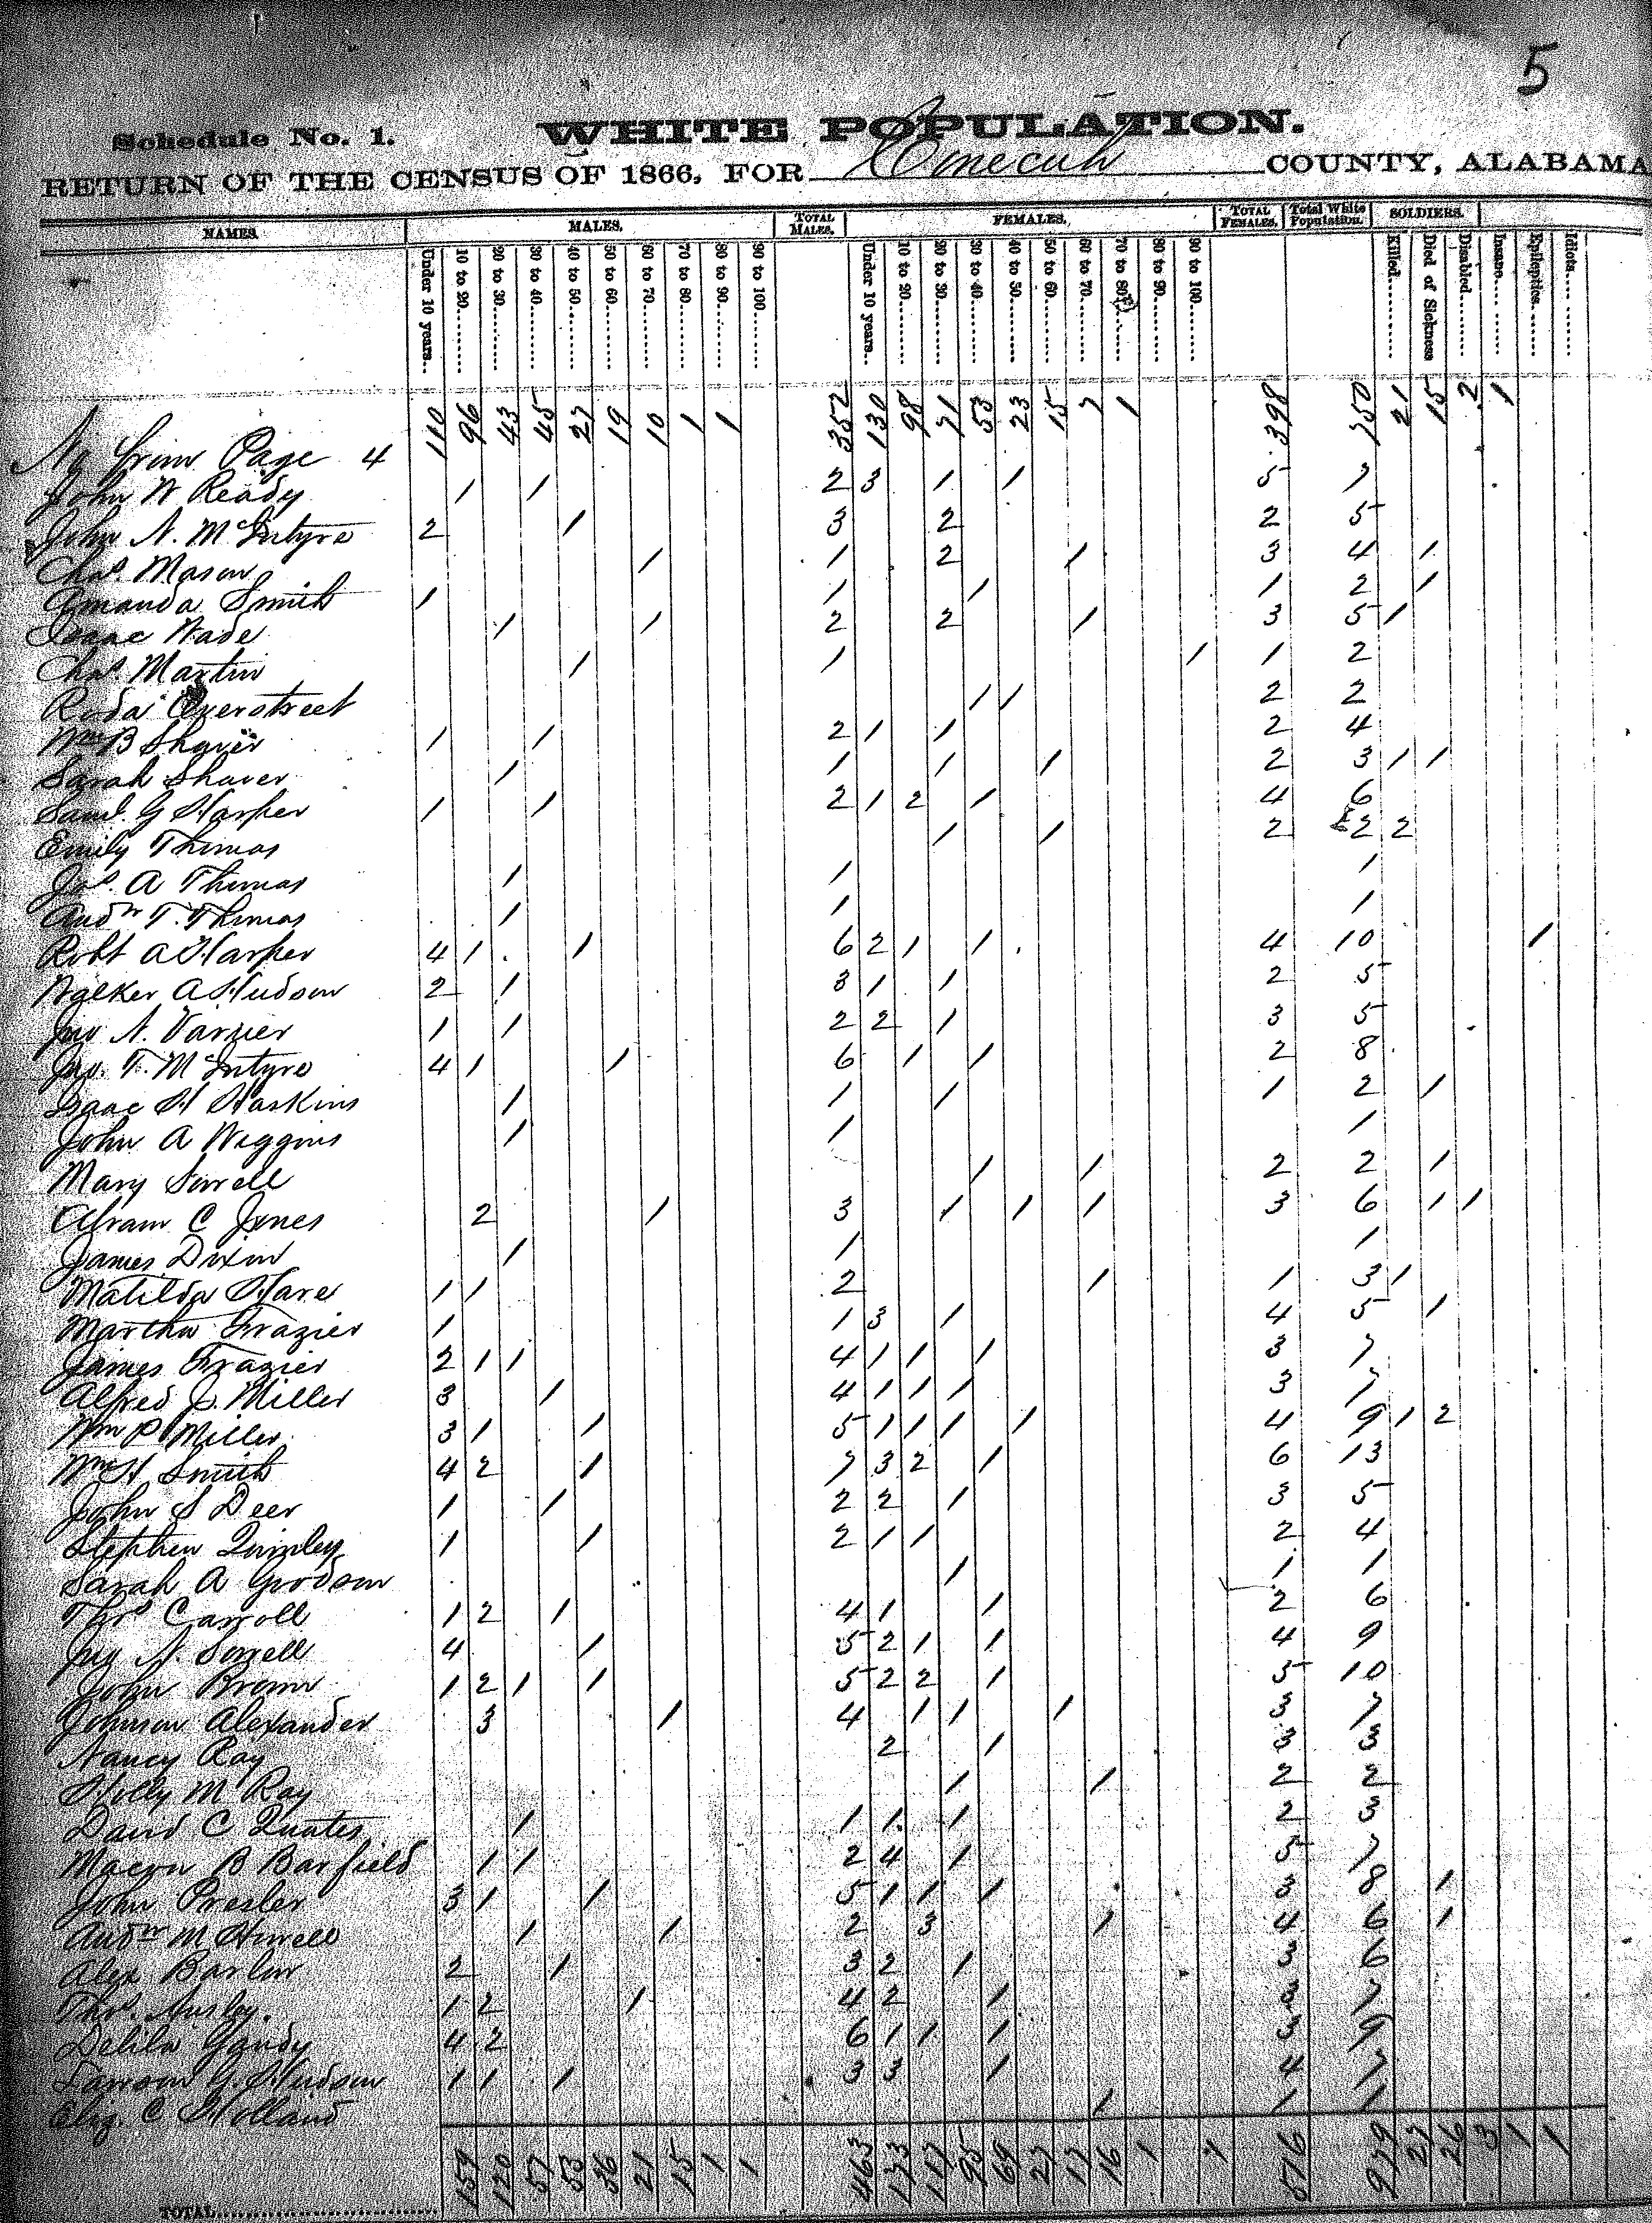 5
Schedule No. 1. WHITE POPULATION.
RETURN OF THE CENSUS OF 1866, FOR Conecuh COUNTY, ALABAMA
NAMES. MALES. TOTAL MALES. FEMALES. TOTAL FEMALES. Total White Population. SOLDIERS.
Under 10 years.. 10 to 20........ 20 to 30........ 30 to 40........ 40 to 50........ 50 to 60........ 60 to 70........ 70 to 80........ 80 to 90........ 90 to 100........ Under 10 years.. 10 to 20........ 20 to 30........ 30 to 40........ 40 to 50........ 50 to 60........ 60 to 70........ 70 to 80........ 80 to 90........ 90 to 100........ Killed........ Died of Sickness Disabled........ Insane........ Epileptics........ Idiots........
Page 4 110 96 43 45 27 19 10 1 1 352 130 98 71 53 23 15 7 1 398 750 21 15 2 1
John W Ready 1 1 2 3 1 1 5 7
John N. McIntyre 2 1 3 2 2 5
Chas. Mason 1 1 2 1 3 4 1
Amanda Smith 1 1 1 1 2 1
Isaac Wade 1 1 2 2 1 3 5 1
Chas. Martin 1 1 1 1 2
Roda Overstreet 1 1 2 2
Wm B Shaver 1 1 2 1 1 2 4
Sarah Shaver 1 1 1 1 2 3 1 1
Saml. G Harper 1 1 2 1 2 1 4 6
Emily Thomas 1 1 2 2 2
Jas. A Thomas 1 1 1
Andw T. Thomas 1 1 1
Robt A Harper 4 1 1 6 2 1 1 4 10 1
Walker A Hudson 2 1 3 1 1 2 5
Jno N. Varner 1 1 2 2 1 3 5
Jno. T. McIntyre 4 1 1 6 1 1 2 8
Isaac H Haskins 1 1 1 1 2 1
John A Wiggins 1 1 1
Mary Sorrell 1 1 2 2 1
Abram C Jones 2 1 3 1 1 1 3 6 1 1
James Dixon 1 1 1
Matilda Hare 1 1 2 1 1 3 1
Martha Frazier 1 1 3 1 4 5 1
James Frazier 2 1 1 4 1 1 1 3 7
Alfred J. Miller 3 1 4 1 1 1 3 7
Wm P Miller 3 1 1 5 1 1 1 1 4 9 1 2
Wm H Smith 4 2 1 7 3 2 1 6 13
John S Deer 1 1 2 2 1 3 5
Stephen Quinley 1 1 2 1 1 2 4
Sarah A Goodson 1 1 1
Thos Carroll 1 2 1 4 1 1 2 6
Jno N. Sorrell 4 1 5 2 1 1 4 9
John Brown 1 2 1 1 5 2 2 1 5 10
Johnson Alexander 3 1 4 1 1 1 3 7
Nancy Ray 2 1 3 3
Holly M Ray 1 1 2 2
David C Quates 1 1 1 1 2 3
Macon B Barfield 1 1 2 4 1 5 7
John Presler 3 1 1 5 1 1 1 3 8 1
Andw M Howell 1 1 2 3 1 4 6 1
Alex Barlow 2 1 3 2 1 3 6
Thos. Ansley. 1 2 1 4 2 1 3 7
Delila Gandy 4 2 6 1 1 1 3 9
G. Hudson 1 1 1 3 3 1 4 7
Eliz. C Holland 1 1 1
TOTAL........ 159 120 57 53 36 21 15 1 1 463 173 117 95 69 27 17 16 1 1 516 979 27 26 3 1 1